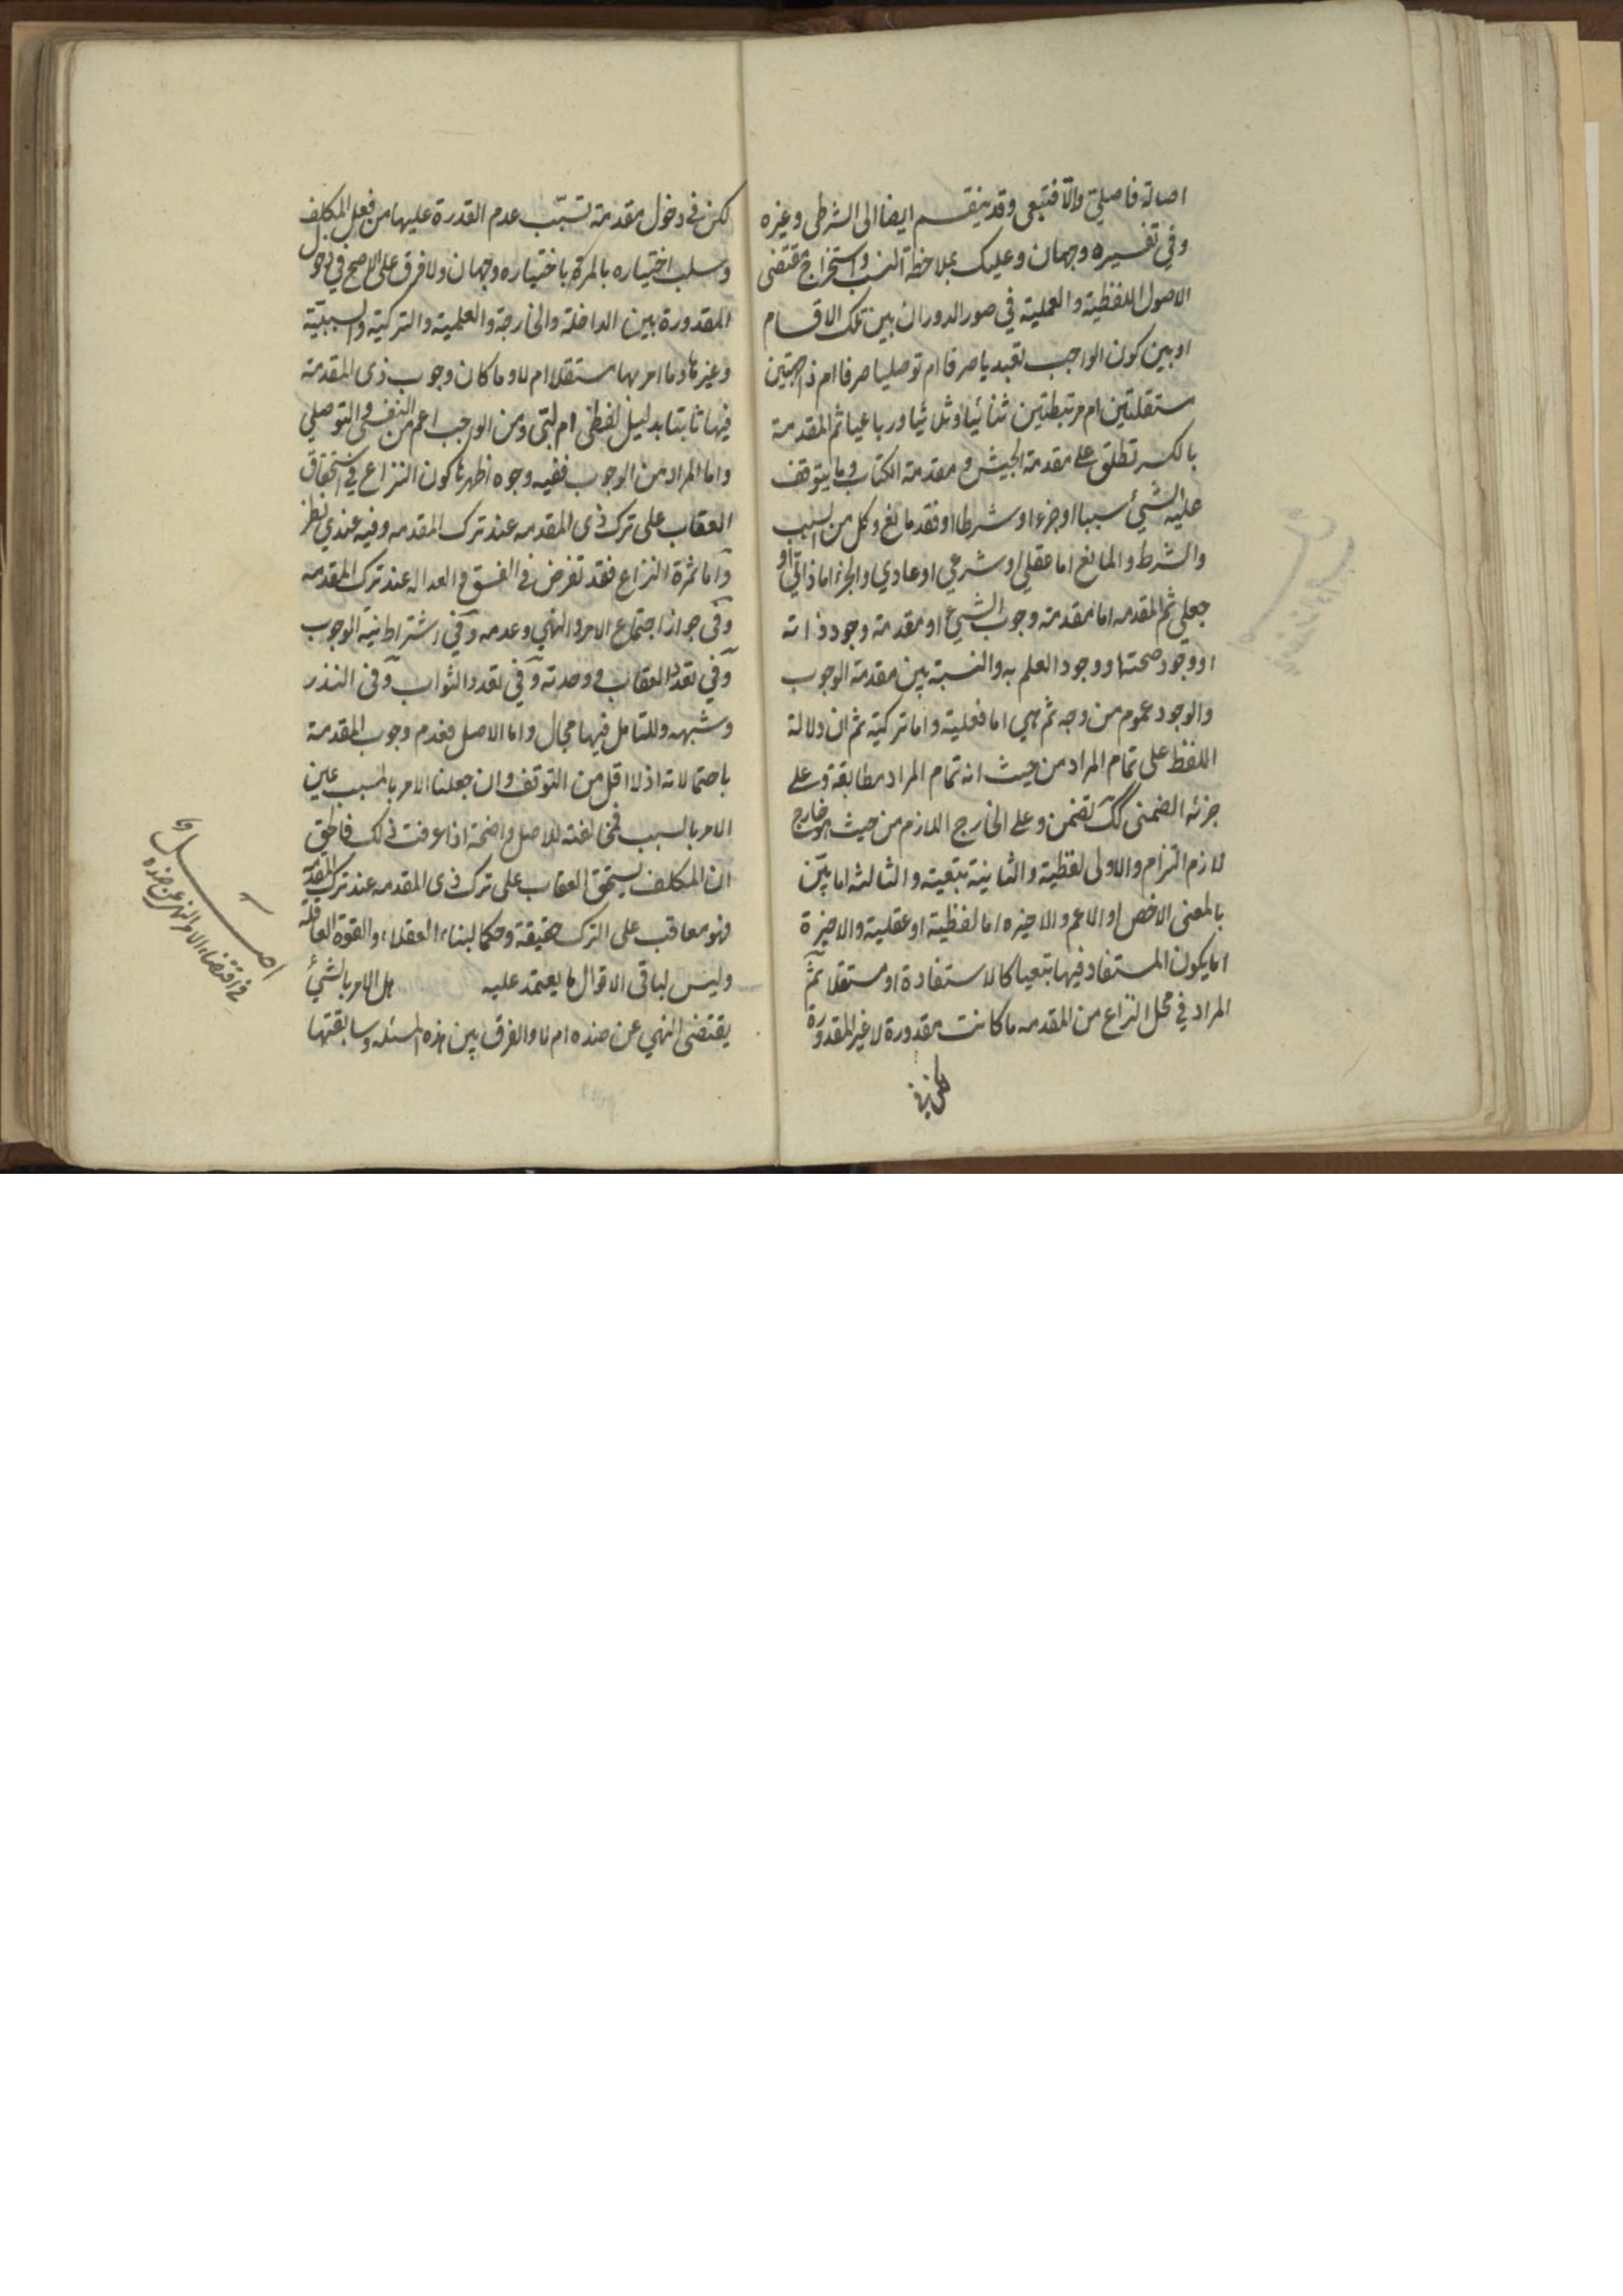 اصالة فاصلي والّا فتبعي وقد ينقسم ايضا الى الشرطى وغيره
وفي تفسيره وجهان وعليك بملاحظة النسب واستخراج مقتضى
الاصول اللفظية والعملية في صور الدوران بين تلك الاقسام
او بين كون الواجب تعبديا صرفا ام توصليا صرفا ام ذا جهتين
مستقلتين ام مرتبطتين ثنائيا وثلاثيا ورباعيا ثم المقدمة
بالكسر تطلق على مقدمة الجيش ومقدمة الكتاب وما يتوقف
عليه الشئ سببا او جزءا او شرطا او فقد مانع وكل من السبب
والشرط والمانع اما عقلي او شرعي او عادي والجزء اما ذاتي او
جعلي ثم المقدمه اما مقدمة وجوب الشئ او مقدمة وجود ذاته
او وجود صحتها ووجود العلم به والنسبة بين مقدمة الوجوب
والوجود عموم من وجه ثم هي اما فعلية واما تركية ثم ان دلالة
اللفظ على تمام المراد من حيث انه تمام المراد مطابقة وعلى
جزئه الضمنى كك تضمن وعلى الخارج اللازم من حيث هو خارج
لازم التزام والاولى لفظية والثانية تبعية والثالثه اما بيّن
بالمعنى الاخص او الاعم والاخيره اما لفظية او عقلية والاخيرة
اما يكون المستفاد فيها تبعيا كالاستفادة او مستقلا ثم
المراد في محل النزاع من المقدمه ما كانت مقدورة لا غير المقدورة
لكن في
لكن في دخول مقدمة تسبّب عدم القدرة عليها من فعل المكلف
وسلب اختياره بالمرة باختياره وجهان ولا فرق على الاصح في دخول
المقدورة بين الداخلة والخارجة والعلمية والتركية والسببيّة
وغيرها وما امر بها مستقلا ام لا وما كان وجوب ذى المقدمة
فيها ثابتا بدليل لفظى ام لبّى ومن الواجب اعم من النفسى والتوصلي
واما المراد من الوجوب ففيه وجوه اظهرها كون النزاع في استحقاق
العقاب على ترك ذى المقدمه عند ترك المقدمه وفيه عندي نظر
وآما ثمرة النزاع فقد تفرض في الفسق والعداله عند ترك المقدمه
وفى جواز اجتماع الامر والنهي وعدمه وفي اشتراط نية الوجوب
وفي تعدد العقاب ووحدته وفي تعدد الثواب وفى النذر
وشبهه وللتامل فيها مجال واما الاصل فعدم وجوب المقدمة
باحتمالاته اذ لا اقل من التوقف وان جعلنا الامر بالمسبب عين
الامر بالسبب فمخالفته للاصل واضحة اذا عرفت ذلك فالحق
ان المكلف يستحق العقاب على ترك ذى المقدمه عند ترك المقدّمة
فهو معاقب على الترك حقيقة وحكما لبناء العقلاء والقوة العاقلة
وليس لباقى الاقوال ما يعتمد عليه هل الامر بالشئ
يقتضى النهي عن ضده ام لا والفرق بين هذه المسئله وسابقتها
اصل
في اقتضاء الامر النهي عن ضده